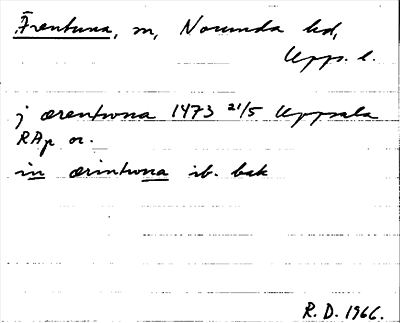 Ärentuna, sn, Norunda hd,
Upps. l.
j ærentwna 1473 21/5 Uppsala
RAp or.
in ærintwna ib. bak
R. D. 1966.